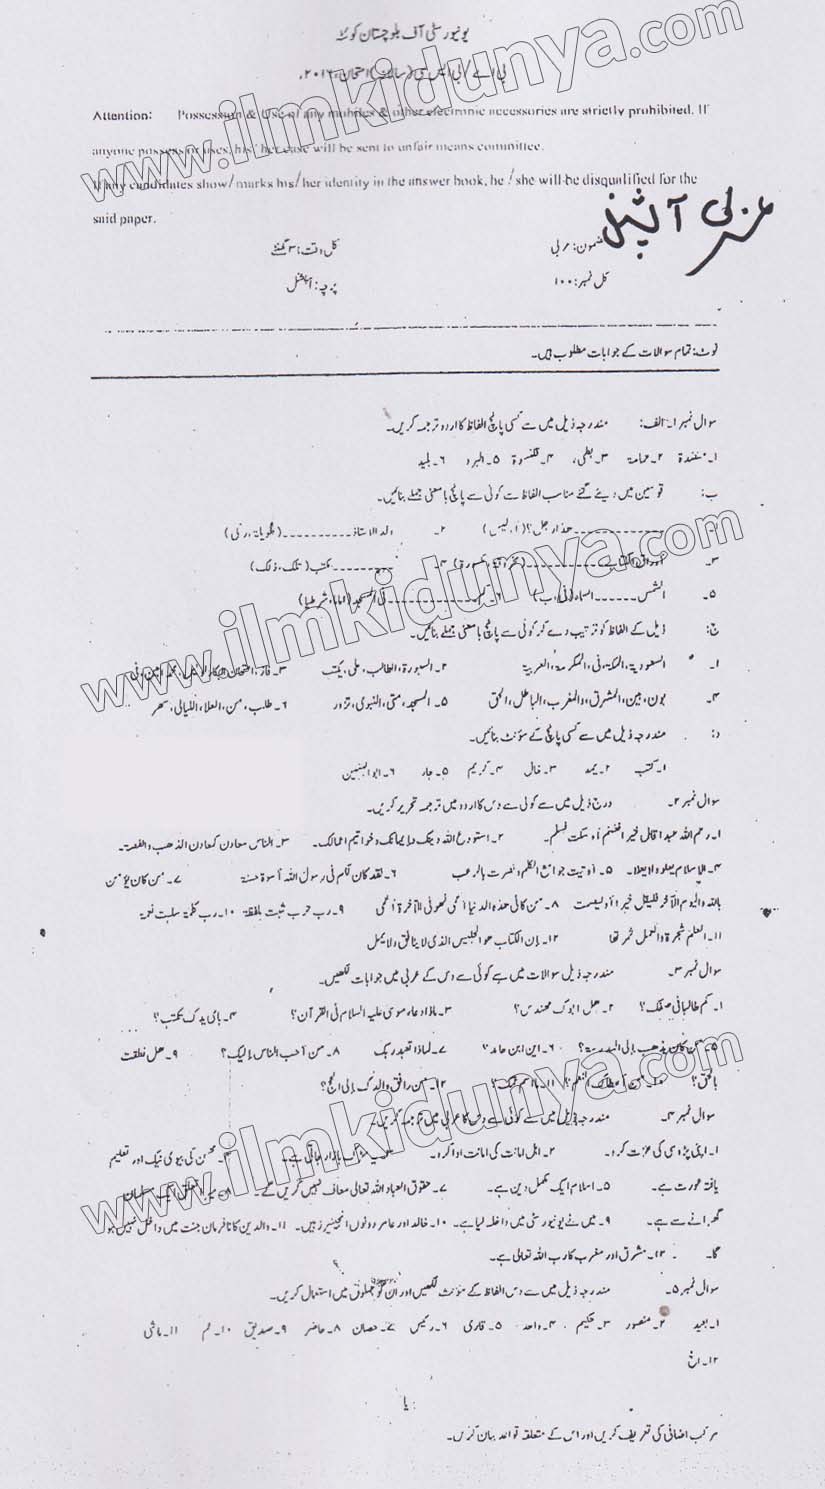 یونیورسٹی آف بلوچستان کوئٹہ
بی اے/بی ایس سی (سالانہ) امتحان، ۲۰۱۶ء
Attention: Possession & Use of any mobiles & other electronic accessories are strictly prohibited. If
anyone possess or uses, his/ her case will be sent to unfair means committee.
If any candidates show/ marks his/ her identity in the answer book, he / she will be disqualified for the
said paper.
عربی آپشنل
مضمون: عربی کل وقت: ۳ گھنٹے
کل نمبر: ۱۰۰ پرچہ: آپشنل
نوٹ: تمام سوالات کے جوابات مطلوب ہیں۔
سوال نمبر ۱۔ الف: مندرجہ ذیل میں سے کسی پانچ الفاظ کا اردو ترجمہ کریں۔
۱۔ منضدة ۲۔ عمامة ۳۔ بطی، ۴۔ قلنسوة ۵۔ البرد ۶۔ بلید
ب: قوسین میں دیئے گئے مناسب الفاظ سے کوئی سے پانچ بامعنی جملے بنائیں۔
۱۔ ---------- هذا رجل؟ (أ، لیس) ۲۔ الاستاذ ----------
۳۔ ---------- ۴۔ ---------- مکتب (تلک، ذلک)
۵۔ الشمس ------ السماء (فی، ب) ۶۔ ---------- فی المسجد
ج: ذیل کے الفاظ کو ترتیب دے کر کوئی سے پانچ بامعنی جملے بنائیں۔
۱۔ السعودیة، المکة، فی، المکرمة، العربیة ۲۔ السبورة، الطالب، علی، یکتب ۳۔ فاز، امتحان
۴۔ بون، بین، المشرق، والمغرب، الباطل، الحق ۵۔ المسجد، متی، النبوی، تزور ۶۔ طلب، من، العلا، اللیالی، سهر
د: مندرجہ ذیل میں سے کسی پانچ کے مؤنث بنائیں۔
۱۔ کتب ۲۔ یمد ۳۔ خال ۴۔ کریم ۵۔ جار ۶۔ ابوالبنین
سوال نمبر ۲۔ درج ذیل میں سے کوئی سے دس کا اردو میں ترجمہ تحریر کریں۔
۱۔ رحم الله عبدا قال خیرا فغنم أو سکت فسلم۔ ۲۔ استودع الله دینک وایمانک وخواتیم اعمالک۔ ۳۔ الناس معادن کمعادن الذهب والفضة۔
۴۔ الاسلام یعلو ولا یعلا۔ ۵۔ أوتیت جوامع الکلم ونصرت بالرعب ۶۔ لقد کان لکم فی رسول الله أسوة حسنة ۷۔ من کان یؤمن
بالله والیوم الآخر فلیقل خیرا أولیصمت ۸۔ من کان فی هذه الدنیا أعمی فهو فی الآخرة أعمی ۹۔ رب حرب شبت بلفظة ۱۰۔ رب کلمة سلبت نعمة
۱۱۔ العلم شجرة والعمل ثمرتها ۱۲۔ إن الکتاب هو الجلیس الذی لا ینافق ولا یمل
سوال نمبر ۳۔ مندرجہ ذیل سوالات میں سے کوئی سے دس کے عربی میں جوابات لکھیں۔
۱۔ کم طالبا فی صفک؟ ۲۔ هل ابوک مهندس؟ ۳۔ ماذا دعاء موسی علیہ السلام فی القرآن؟ ۴۔ بای یدک تکتب؟
۵۔ من کان یذهب إلی المدرسة؟ ۶۔ این ابن حامد؟ ۷۔ لماذا تعبد ربک ۸۔ من أحب الناس إلیک؟ ۹۔ هل نطقت
بالحق؟ ۱۰۔ ۱۱۔ ما اسم عمک؟ ۱۲۔ من رافق والدک إلی الحج؟
سوال نمبر ۴۔ مندرجہ ذیل میں سے کوئی سے دس کا عربی میں ترجمہ کریں۔
۱۔ اپنی پڑوسی کی عزت کرو۔ ۲۔ اہل امانت کی امانت ادا کرو۔ ۳۔ بازار جاتی ہے۔ ۴۔ محسن کی بیوی نیک اور تعلیم
یافتہ عورت ہے۔ ۵۔ اسلام ایک مکمل دین ہے۔ ۷۔ حقوق العباد اللہ تعالی معاف نہیں کریں گے۔ ۸۔ میرا تعلق ایک مسلمان
گھرانے سے ہے۔ ۹۔ میں نے یونیورسٹی میں داخلہ لیا ہے۔ ۱۰۔ خالد اور عامر دونوں انجینیئرز ہیں۔ ۱۱۔ والدین کا نافرمان جنت میں داخل نہیں ہو
گا۔ ۱۲۔ مشرق اور مغرب کا رب اللہ تعالی ہے۔
سوال نمبر ۵۔ مندرجہ ذیل میں سے دس الفاظ کے مؤنث لکھیں اور ان کو جملوں میں استعمال کریں۔
۱۔ بعید ۲۔ منصور ۳۔ حکیم ۴۔ واحد ۵۔ قاری ۶۔ رئیس ۷۔ حصان ۸۔ حاضر ۹۔ صدیق ۱۰۔ عم ۱۱۔ ماشی
۱۲۔ اخ
یا
مرکب اضافی کی تعریف کریں اور اس کے متعلقہ قواعد بیان کریں۔
www.ilmkidunya.com
www.ilmkidunya.com
www.ilmkidunya.com